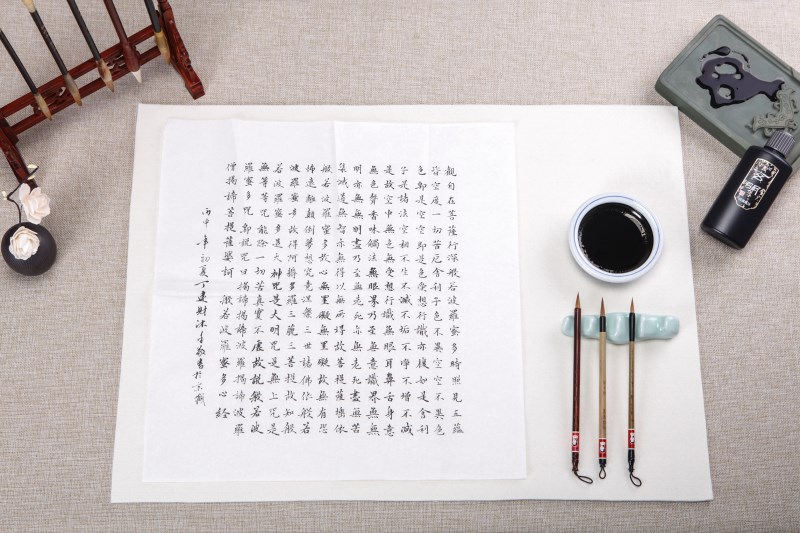 觀自在菩薩行深般若波羅蜜多時照見五蘊
皆空度一切苦厄舍利子色不異空空不異色
色即是空空即是色受想行識亦復如是舍利
子是諸法空相不生不滅不垢不淨不增不減
是故空中無色無受想行識無眼耳鼻舌身意
無色聲香味觸法無眼界乃至無意識界無無
明亦無無明盡乃至無老死亦無老死盡無苦
集滅道無智亦無得以無所得故菩提薩埵依
般若波羅蜜多故心無罣礙無罣礙故無有恐
怖遠離顛倒夢想究竟涅槃三世諸佛依般若
波羅蜜多故得阿耨多羅三藐三菩提故知般
若波羅蜜多是大神咒是大明咒是無上咒是
無等等咒能除一切苦真實不虛故說般若波
羅蜜多咒即說咒曰揭諦揭諦波羅揭諦波羅
僧揭諦菩提薩婆訶 般若波羅蜜多心經
丙申年初夏丁建財沐手敬書於京城